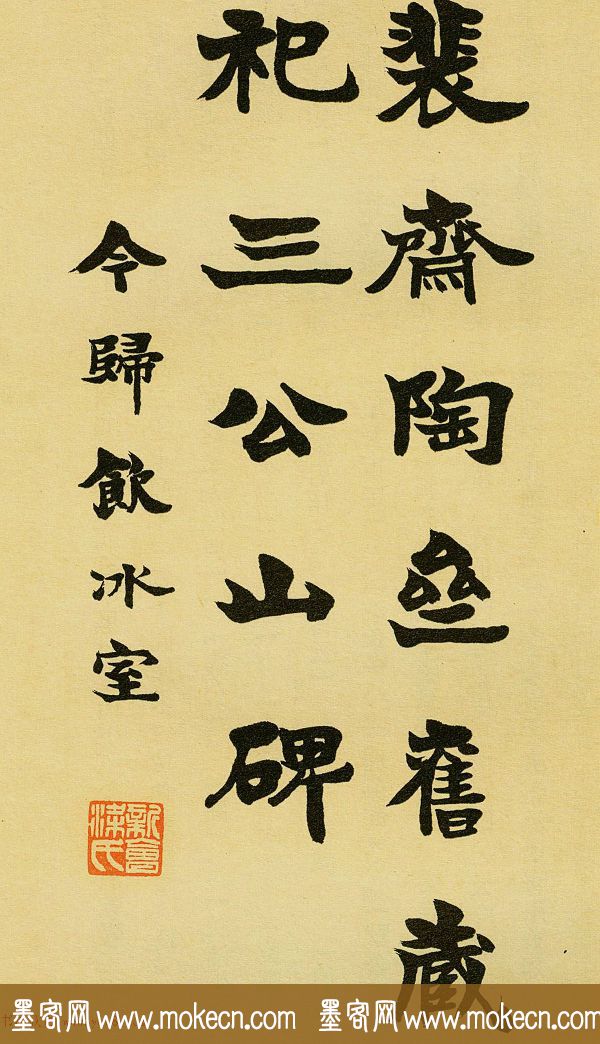 裴齋陶舊藏
祀三公山碑
今歸飲冰室
新會梁氏
墨客网 www.mokecn.com 墨客网 www.mokecn.com